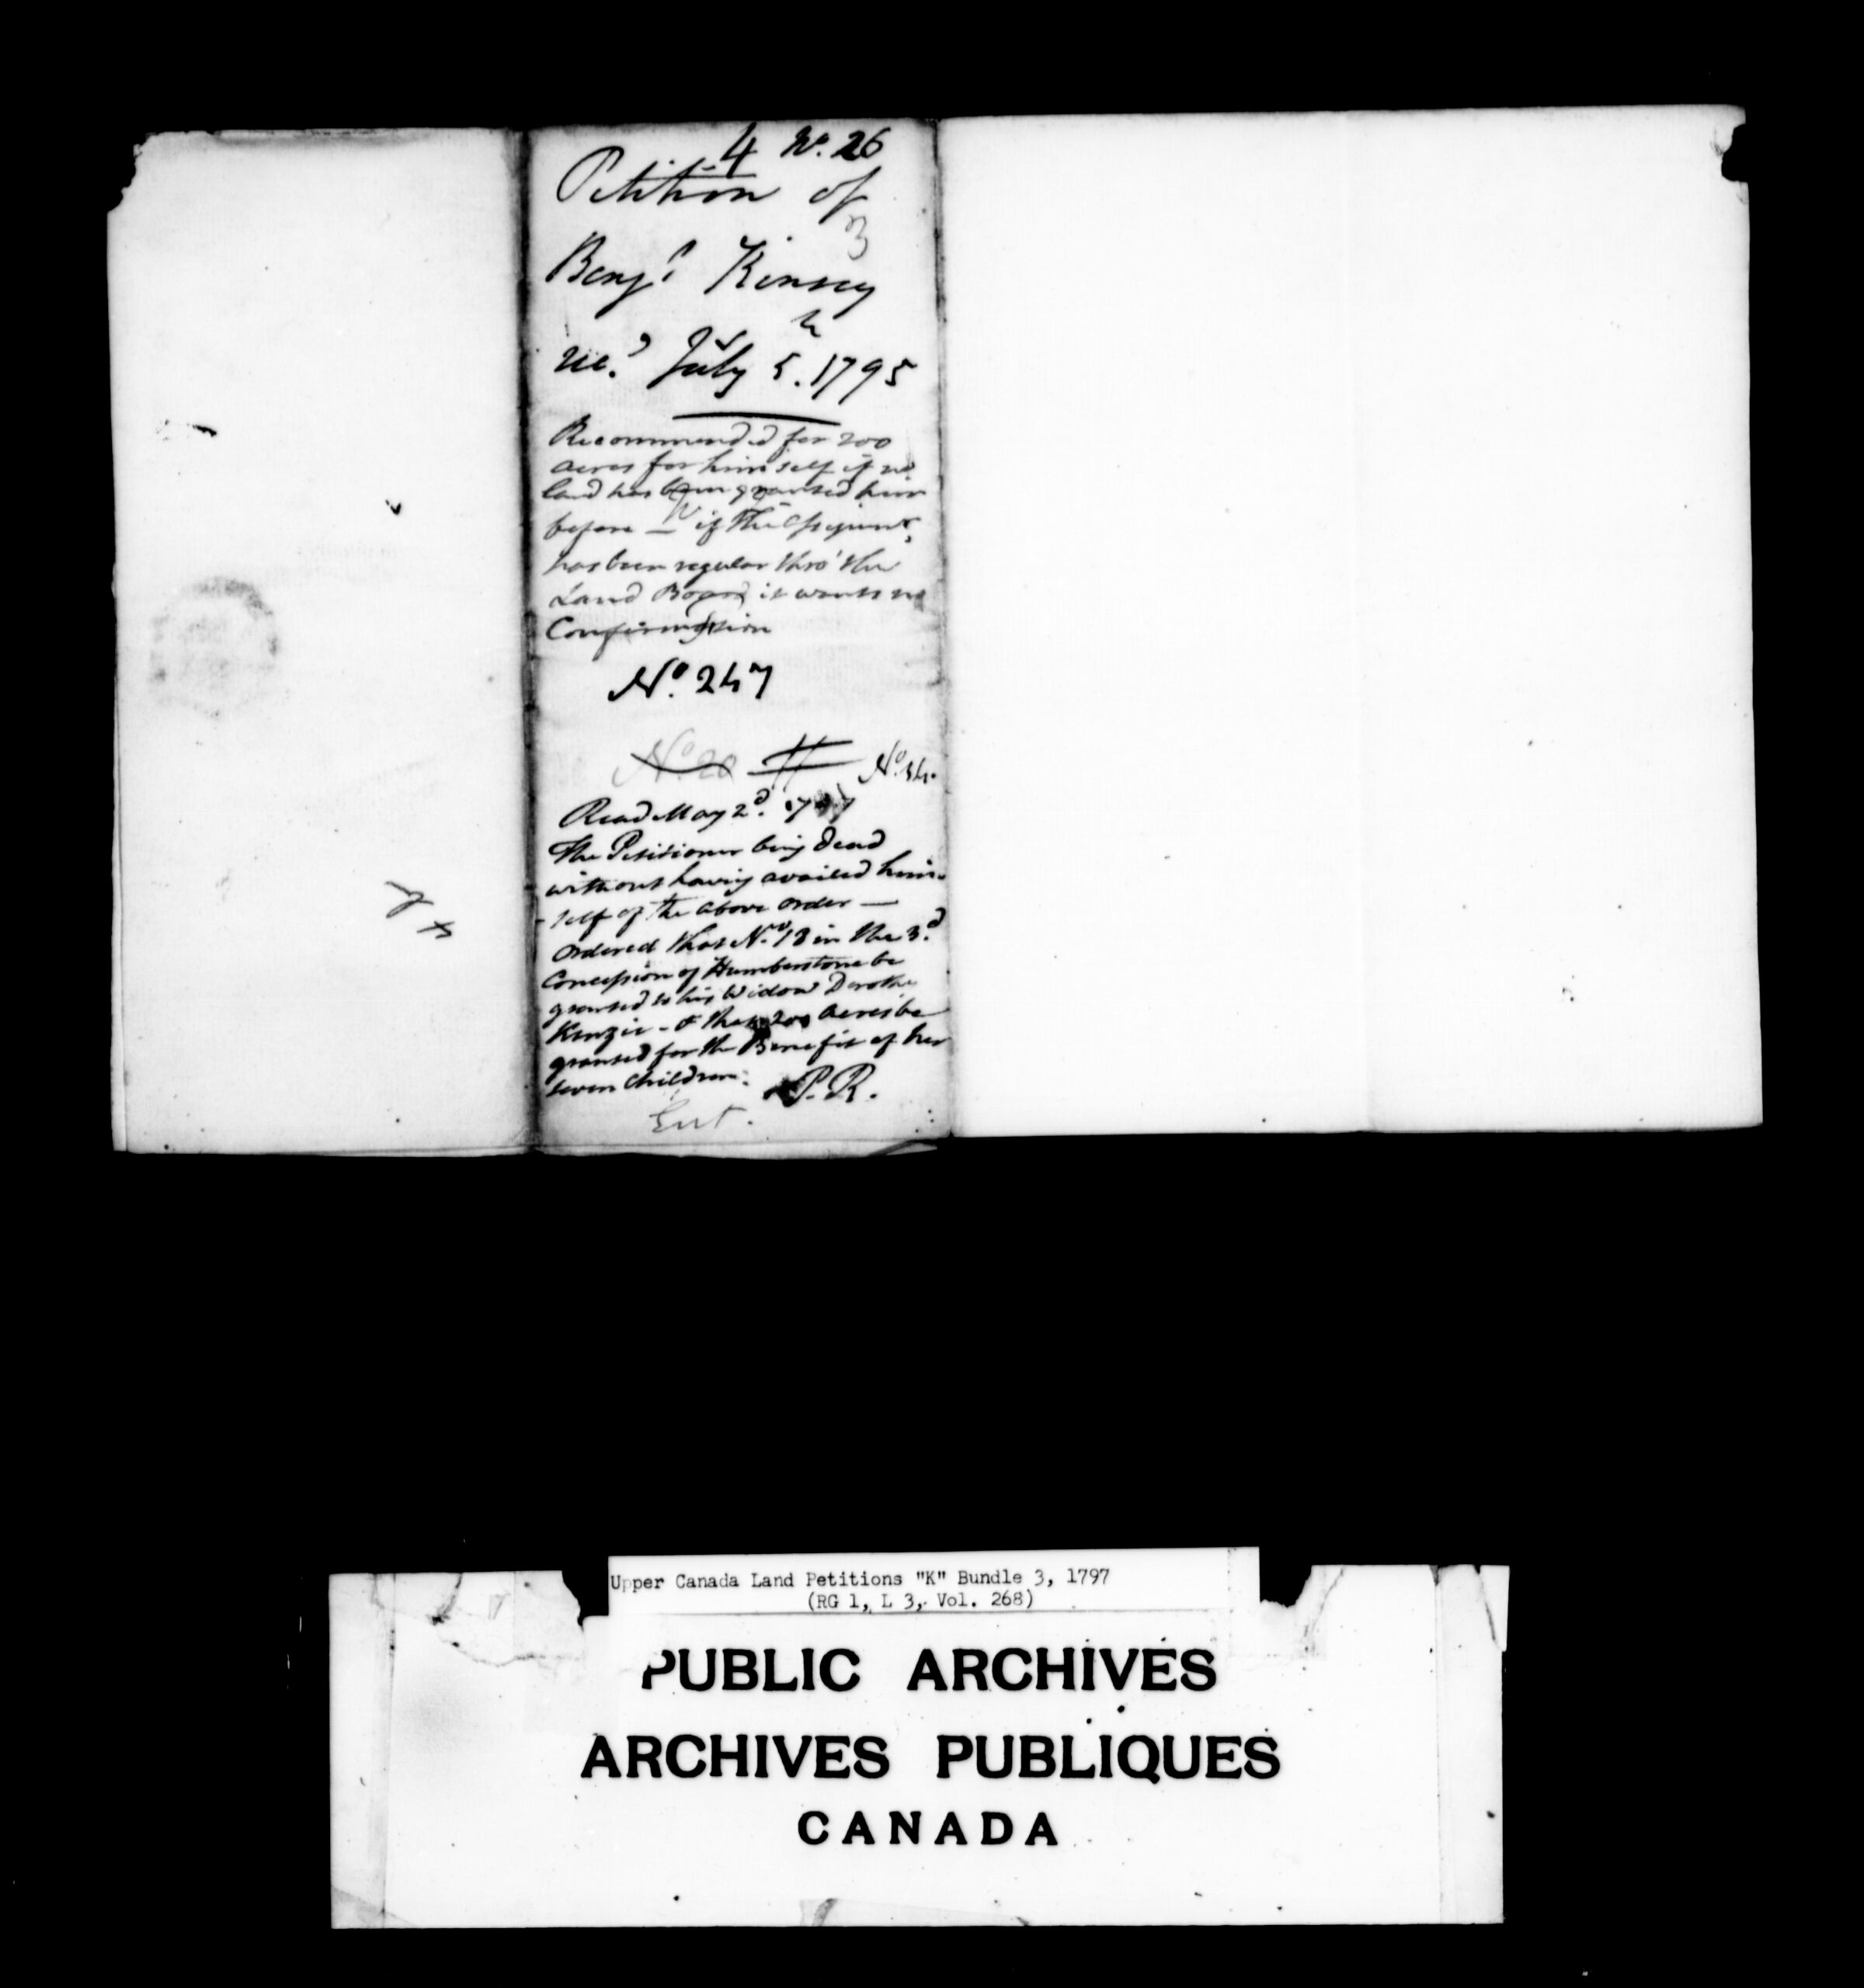 4 No. 26
Petition of
3
Benjn Kinsey
recd July 5th. 1795
Recommended for 200
acres for himself if no
land has been granted him
before — if the Assignmt
has been regular thro' the
Land Board it wants no
Confirmation
No. 247
No. 20 No. 34.
Read May 2d. 1797
The Petitioner being dead
without having availed him-
-self of the above order —
Ordered that No. 18 in the 3d
Concession of Humberstone be
granted to his Widow Dorothe
Kenzie - & that 200 acres be
granted for the Benefit of her
seven Children. P.R.
Ent.
Upper Canada Land Petitions "K" Bundle 3, 1797
(RG 1, L 3, Vol. 268)
PUBLIC ARCHIVES
ARCHIVES PUBLIQUES
CANADA